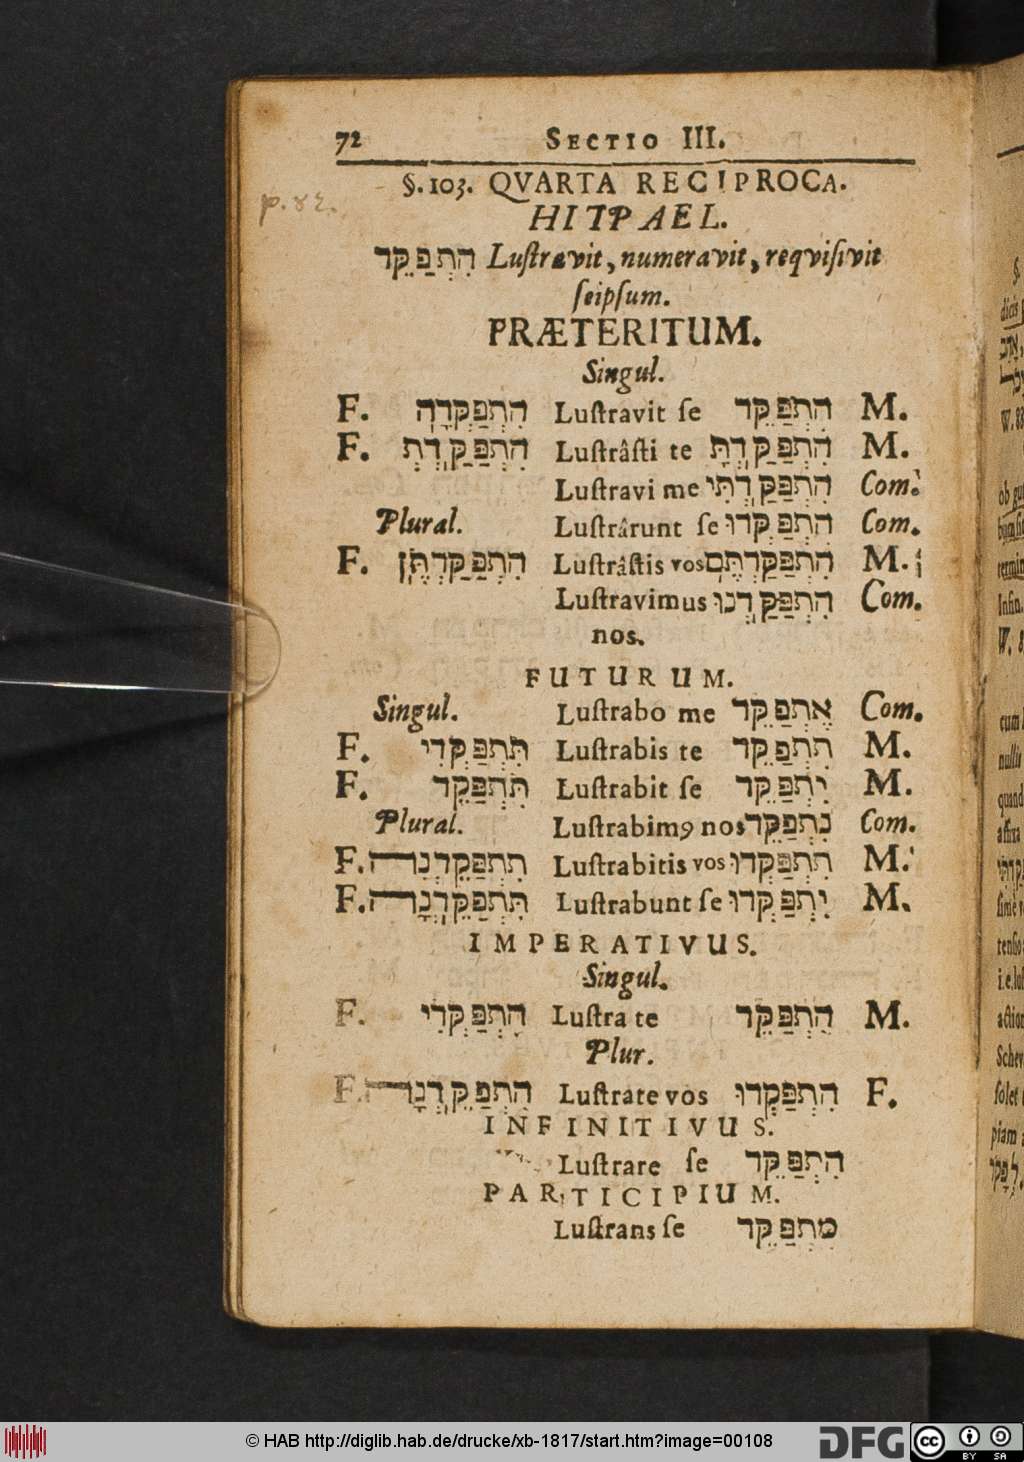 72 SECTIO III.
§. 103. QVARTA RECIPROCA.
p. 82.
HITPAEL.
הִתְפַּקֵּד Lustravit, numeravit, reqvisivit
seipsum.
PRÆTERITUM.
Singul.
F. הִתְפַּקְּדָה Lustravit se הִתְפַּקֵּד M.
F. הִתְפַּקַּדְתְּ Lustrâsti te הִתְפַּקַּדְתָּ M.
Lustravi me הִתְפַּקַּדְתִּי Com.
Plural. Lustrârunt se הִתְפַּקְּדוּ Com.
F. הִתְפַּקַּדְתֶּן Lustrâstis vos הִתְפַּקַּדְתֶּם M.
Lustravimus הִתְפַּקַּדְנוּ Com.
nos.
FUTURUM.
Singul. Lustrabo me אֶתְפַּקֵּד Com.
F. תִּתְפַּקְּדִי Lustrabis te תִּתְפַּקֵּד M.
F. תִּתְפַּקֵּד Lustrabit se יִתְפַּקֵּד M.
Plural. Lustrabimꝰ nos נִתְפַּקֵּד Com.
F. תִּתְפַּקֵּדְנָה Lustrabitis vos תִּתְפַּקְּדוּ M.
F. תִּתְפַּקֵּדְנָה Lustrabunt se יִתְפַּקְּדוּ M.
IMPERATIVUS.
Singul.
F. הִתְפַּקְּדִי Lustra te הִתְפַּקֵּד M.
Plur.
F. הִתְפַּקֵּדְנָה Lustrate vos הִתְפַּקְּדוּ F.
INFINITIVUS.
Lustrare se הִתְפַּקֵּד
PARTICIPIUM.
Lustrans se מִתְפַּקֵּד
© HAB http://diglib.hab.de/drucke/xb-1817/start.htm?image=00108
DFG
cc BY SA